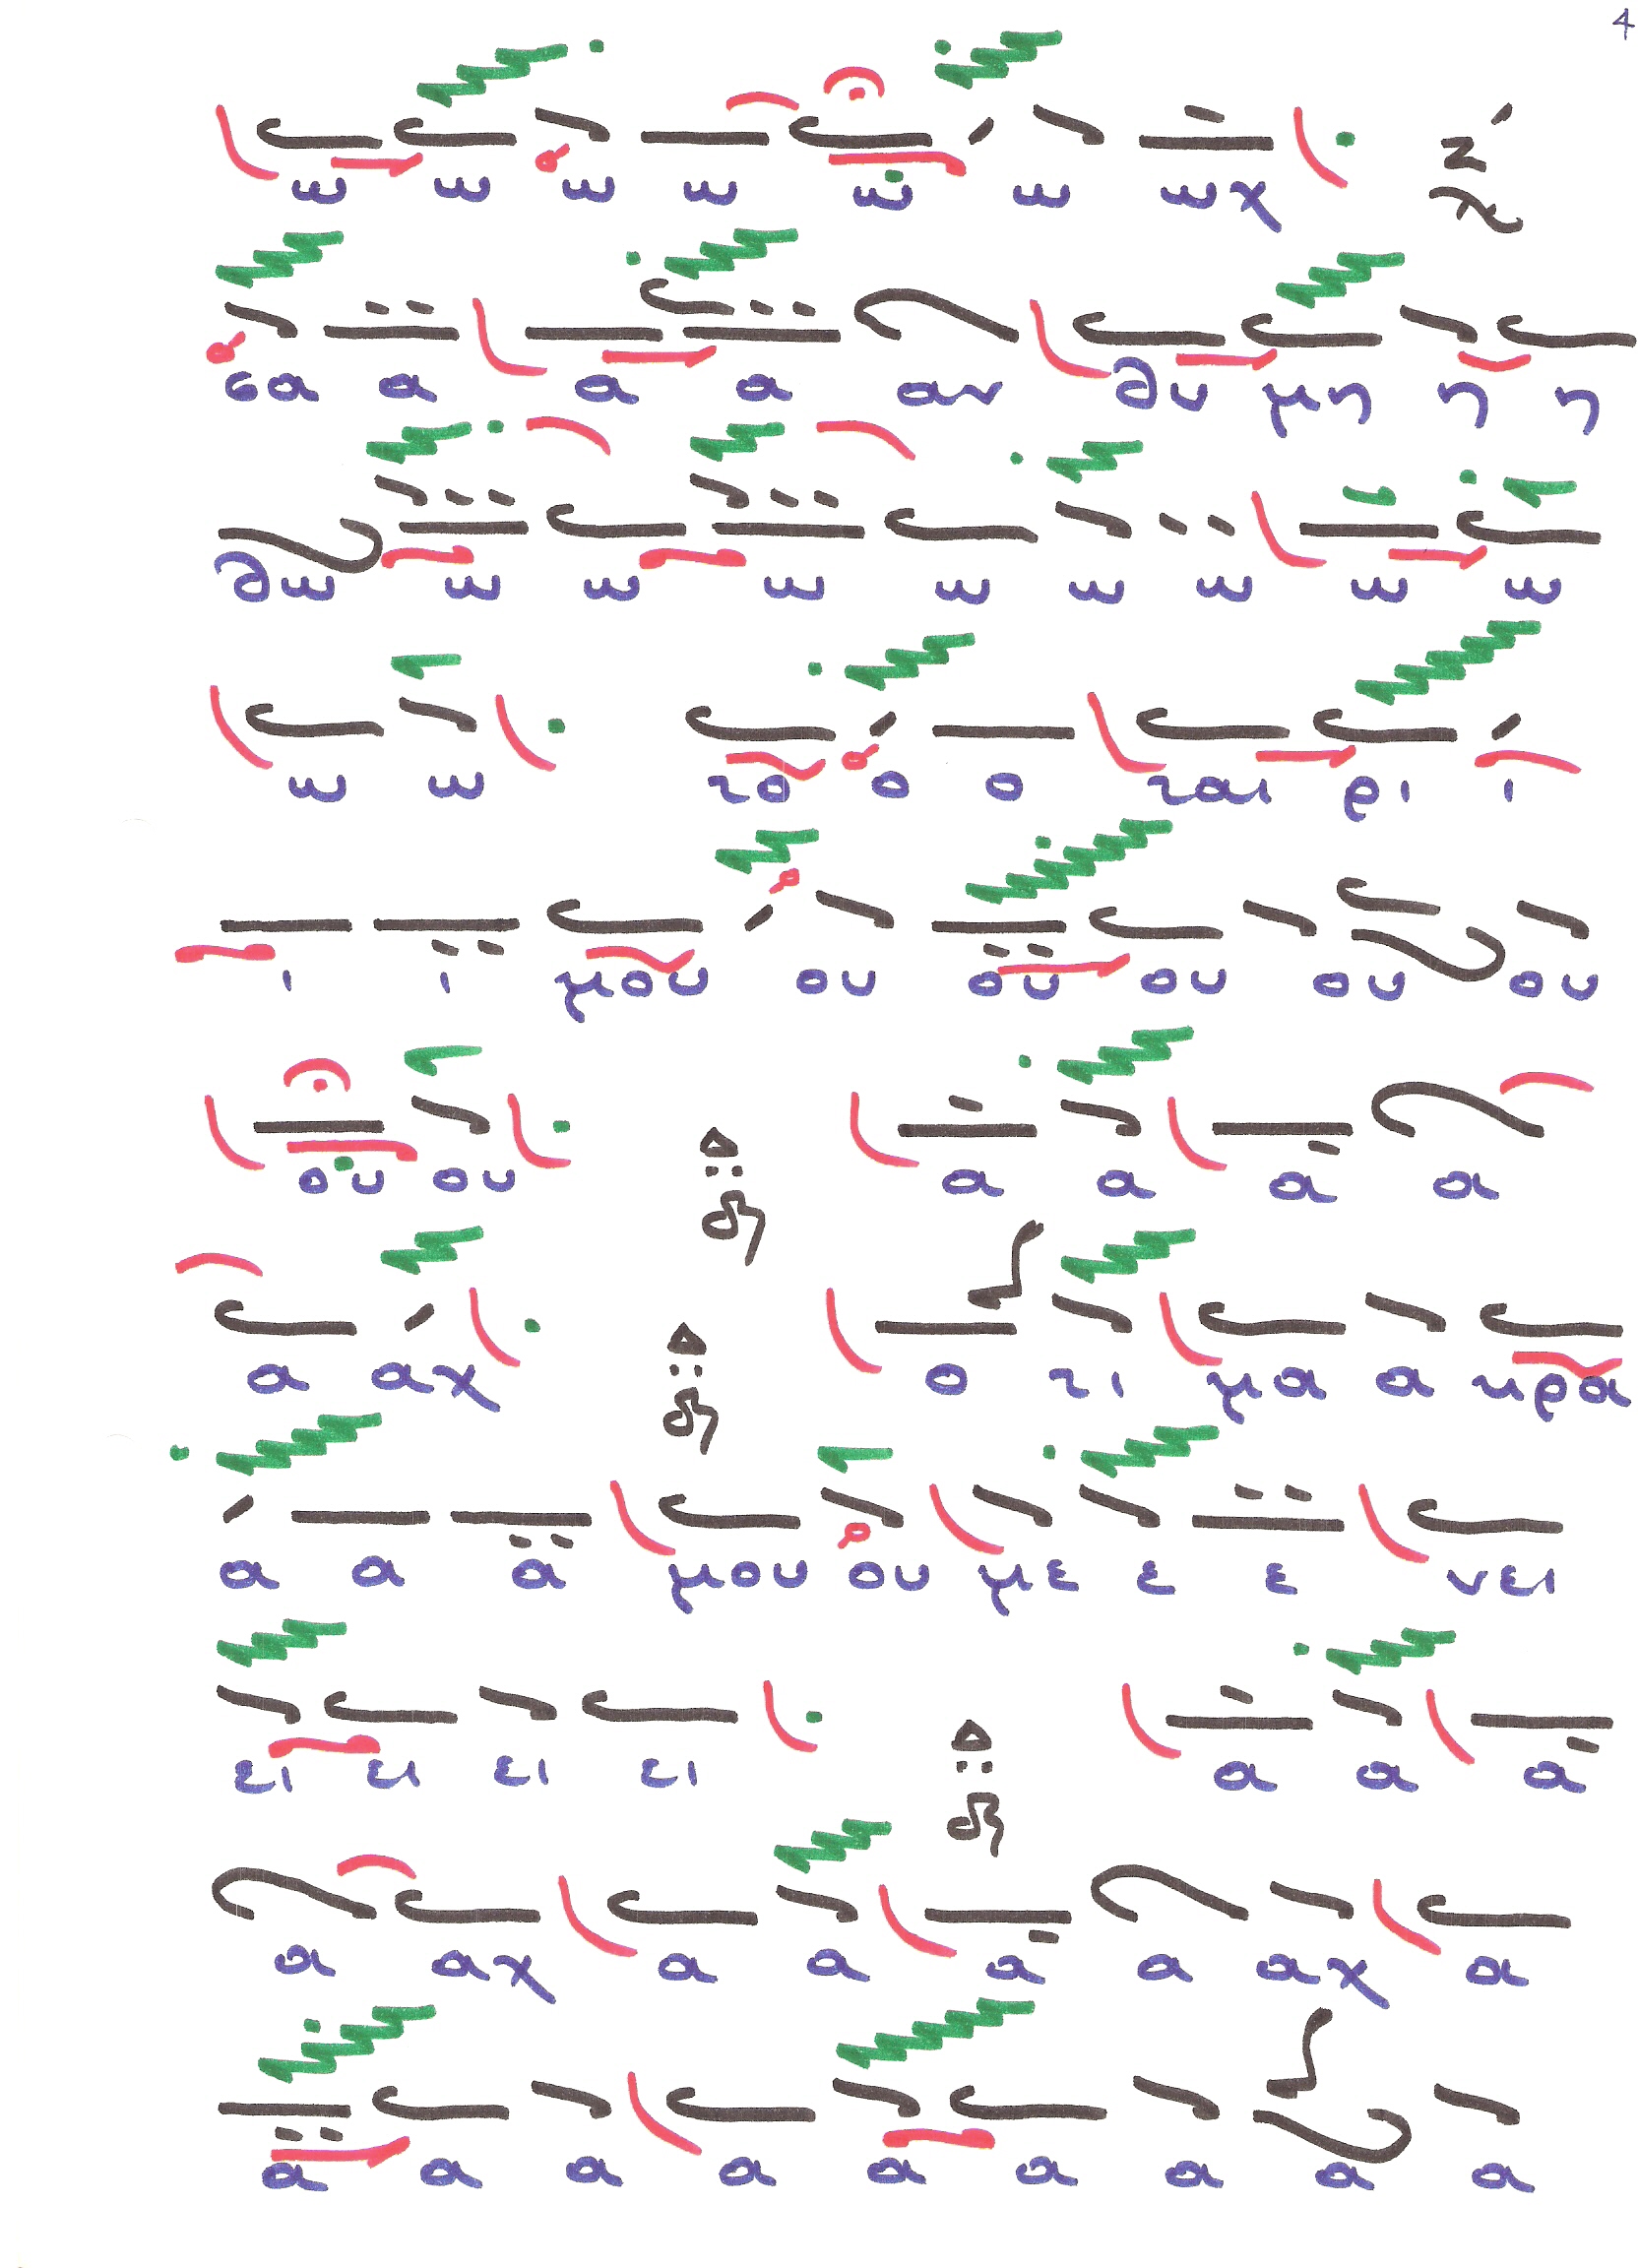 4
ω ω ω ω ω ω ωχ
σα α α α αν θυ μη η η
θω ω ω ω ω ω ω ω ω
ω ω το ο ο ται ρι ι
ι ι μου ου ου ου ου ου
ου ου δη α α α α
α αχ δη ο τι μα α κρα
α α α μου ου με ε ε νει
ει ει ει ει δη α α α
α αχ α α α α αχ α
α α α α α α α α α